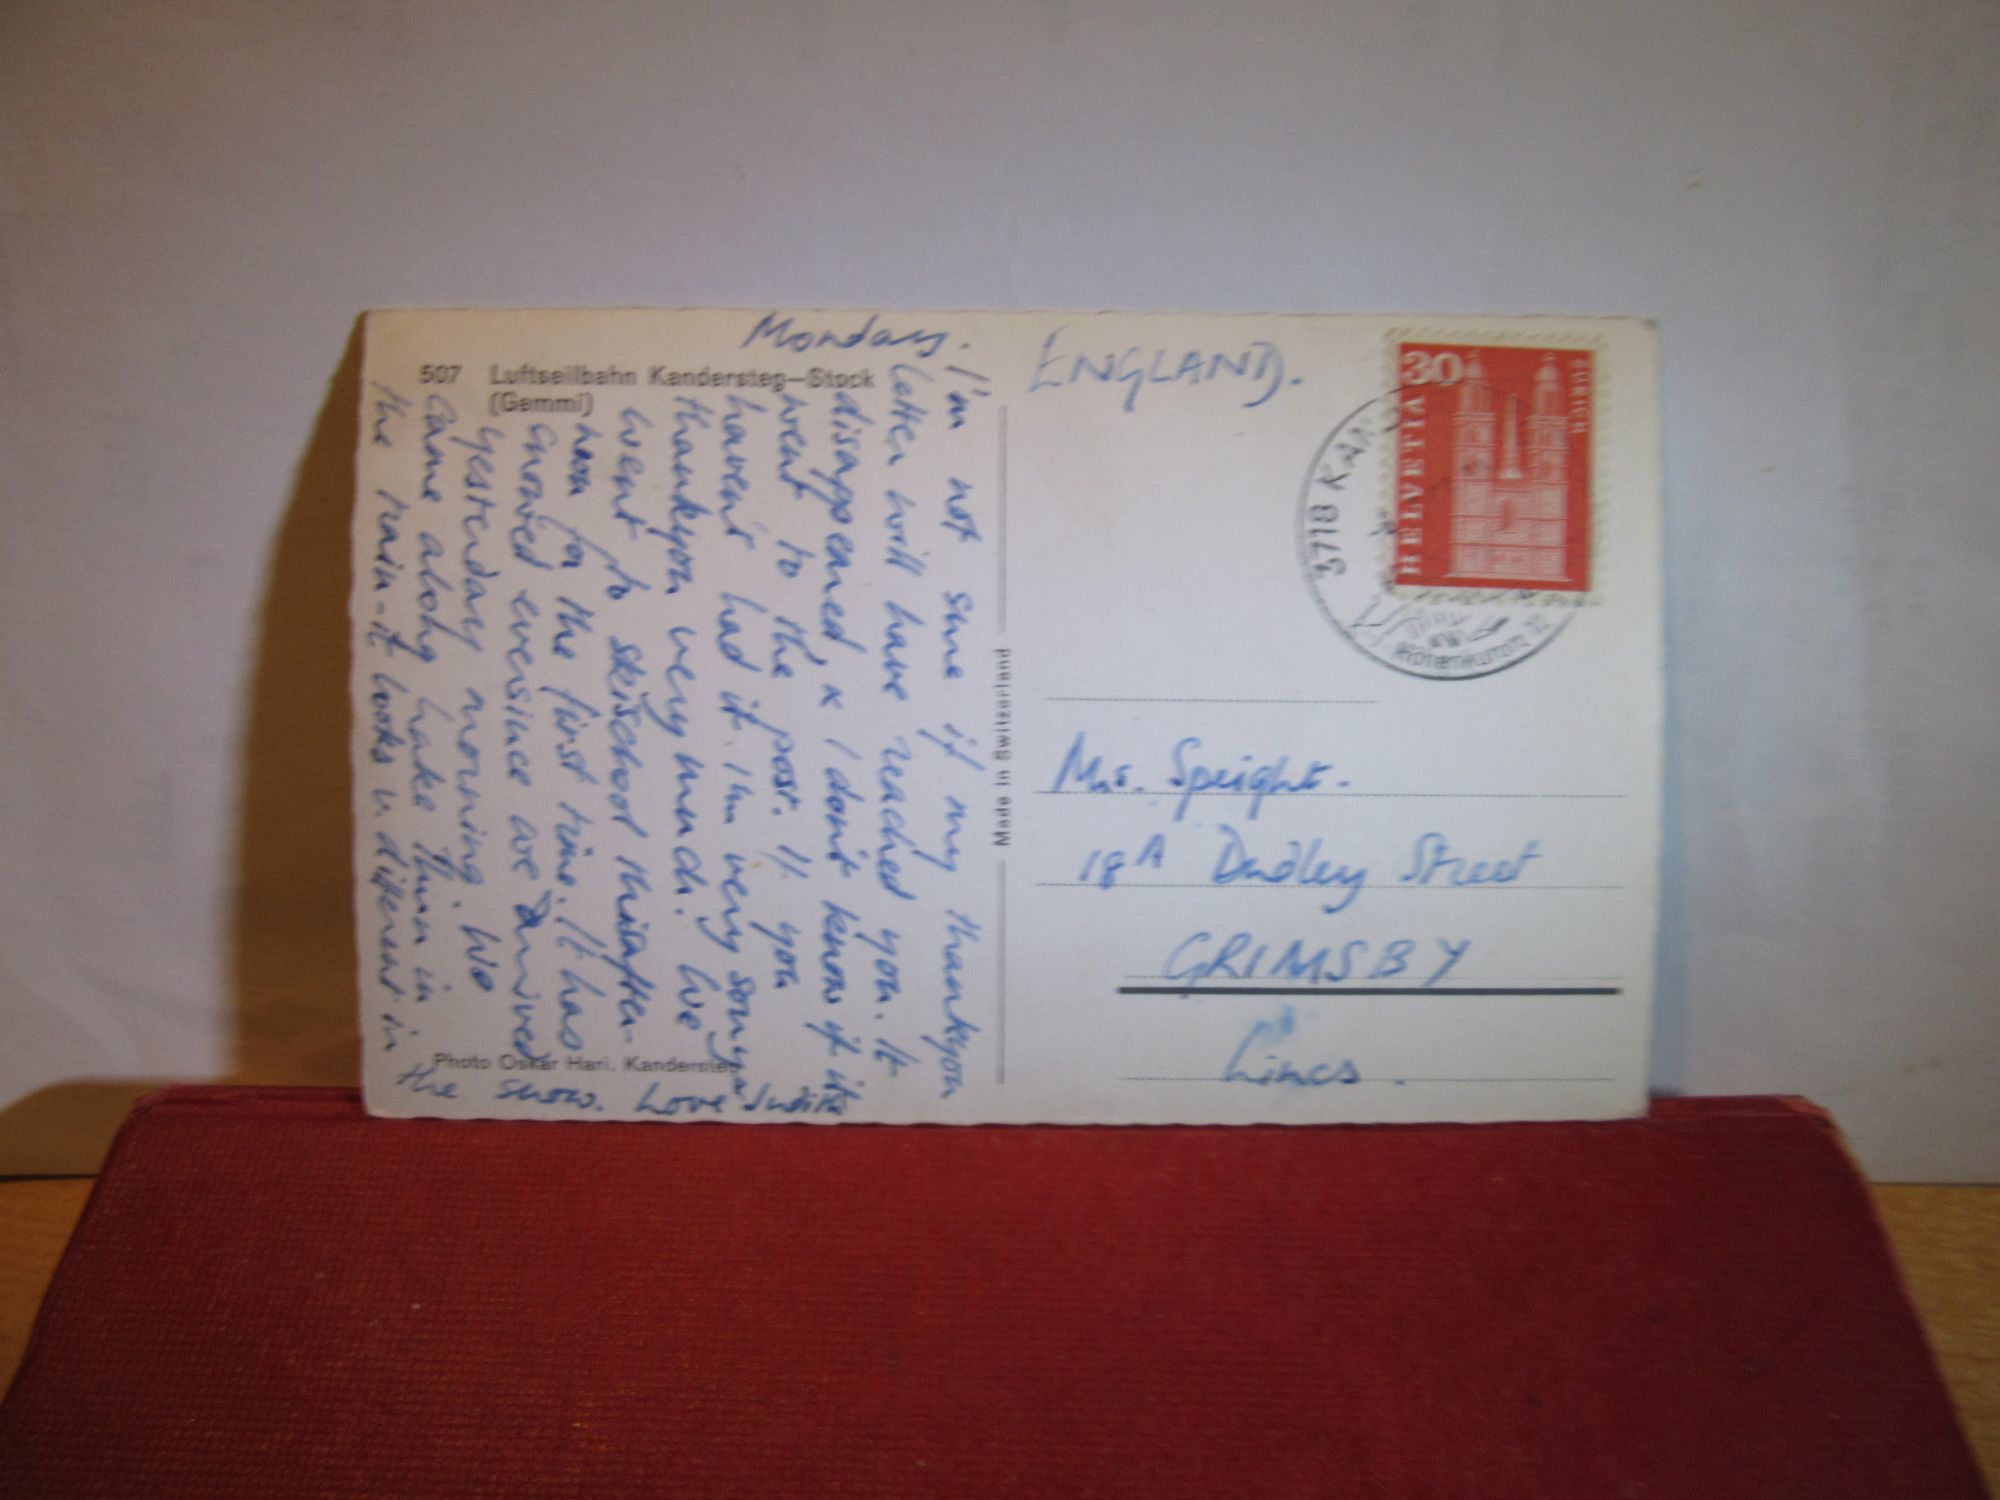 Monday.
507 Luftseilbahn Kandersteg–Stock
(Gemmi)
I'm not sure if my thankyou
letter will have reached you. It
disappeared, & I don't know if it
went to the post. If you
haven't had it. I'm very sorry &
thankyou very much. We
went to skischool thisafter-
noon for the first time. It has
snowed eversince we arrived
yesterday morning. We
came along Lake Thun in
the rain-it looks v. different in
the snow. Love Judith
Photo Oskar Hari. Kandersteg
Made in Switzerland
ENGLAND.
30
HELVETIA
ZÜRICH
3718 KAN
Höhenkurort
Mrs. Speight.
18A Dudley Street
GRIMSBY
Lincs.